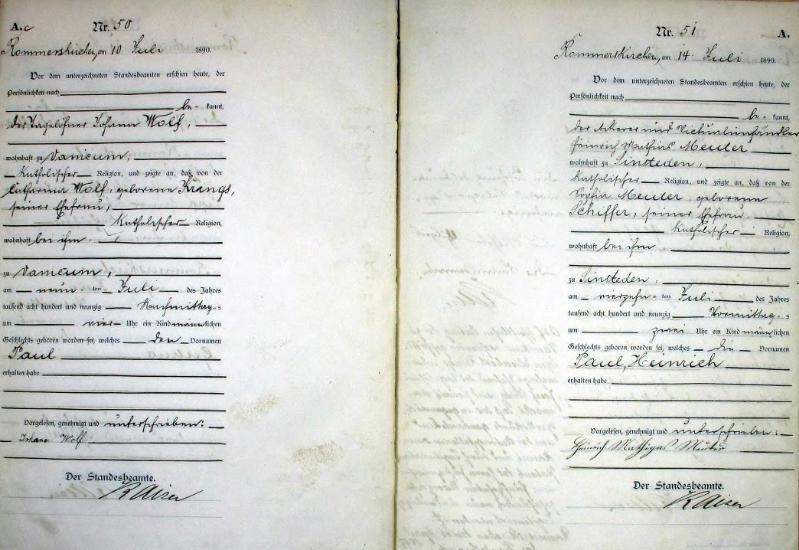 A.c Nr. 50
Rommerskirchen, am 10 Juli 1890.
Vor dem unterzeichneten Standesbeamten erschien heute, der
Persönlichkeit nach
be- kannt,
der Tagelöhner Johann Wolf,
wohnhaft zu Vanikum,
Katholischer Religion, und zeigte an, daß von der
Catharina Wolf, geborene Krangs,
seiner Ehefrau,
Katholischer Religion,
wohnhaft bei ihm,
zu Vanikum,
am neun ten Juli des Jahres
tausend acht hundert und neunzig Nachmittag-s
um vier Uhr ein Kind männlichen
Geschlechts geboren worden sei, welches den Vornamen
Paul
erhalten habe
Vorgelesen, genehmigt und unterschrieben:
Johann Wolf
Der Standesbeamte.
Nr. 51 A.
Rommerskirchen, am 14 Juli 1890.
Vor dem unterzeichneten Standesbeamten erschien heute, der
Persönlichkeit nach
be- kannt,
der Ackerer und Victualienhändler
Heinrich Mathias Meuter
wohnhaft zu Sinsteden,
Katholischer Religion, und zeigte an, daß von der
Sophia Meuter geborene
Schiffer, seiner Ehefrau
Katholischer Religion,
wohnhaft bei ihm,
zu Sinsteden,
am vierzehn ten Juli des Jahres
tausend acht hundert und neunzig Vormittag-s
um zwei Uhr ein Kind männlichen
Geschlechts geboren worden sei, welches die Vornamen
Paul, Heinrich
erhalten habe
Vorgelesen, genehmigt und unterschrieben:
Heinrich Mathias Meuter
Der Standesbeamte.